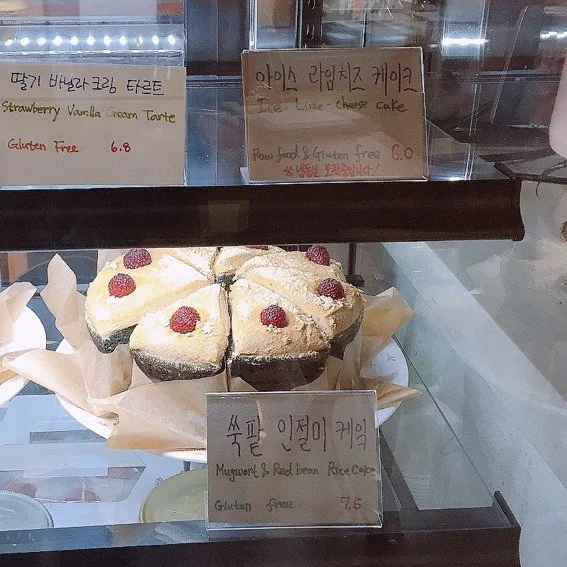 딸기 바닐라크림 타르트
Strawberry Vanilla Cream Tarte
Gluten Free 6.8
아이스 라임치즈 케이크
Ice Lime-cheese cake
Raw food & Gluten free 6.0
※냉동실 보관중입니다!
쑥팥 인절미 케잌
Mugwort & Red bean Rice Cake
Gluten free 7.5